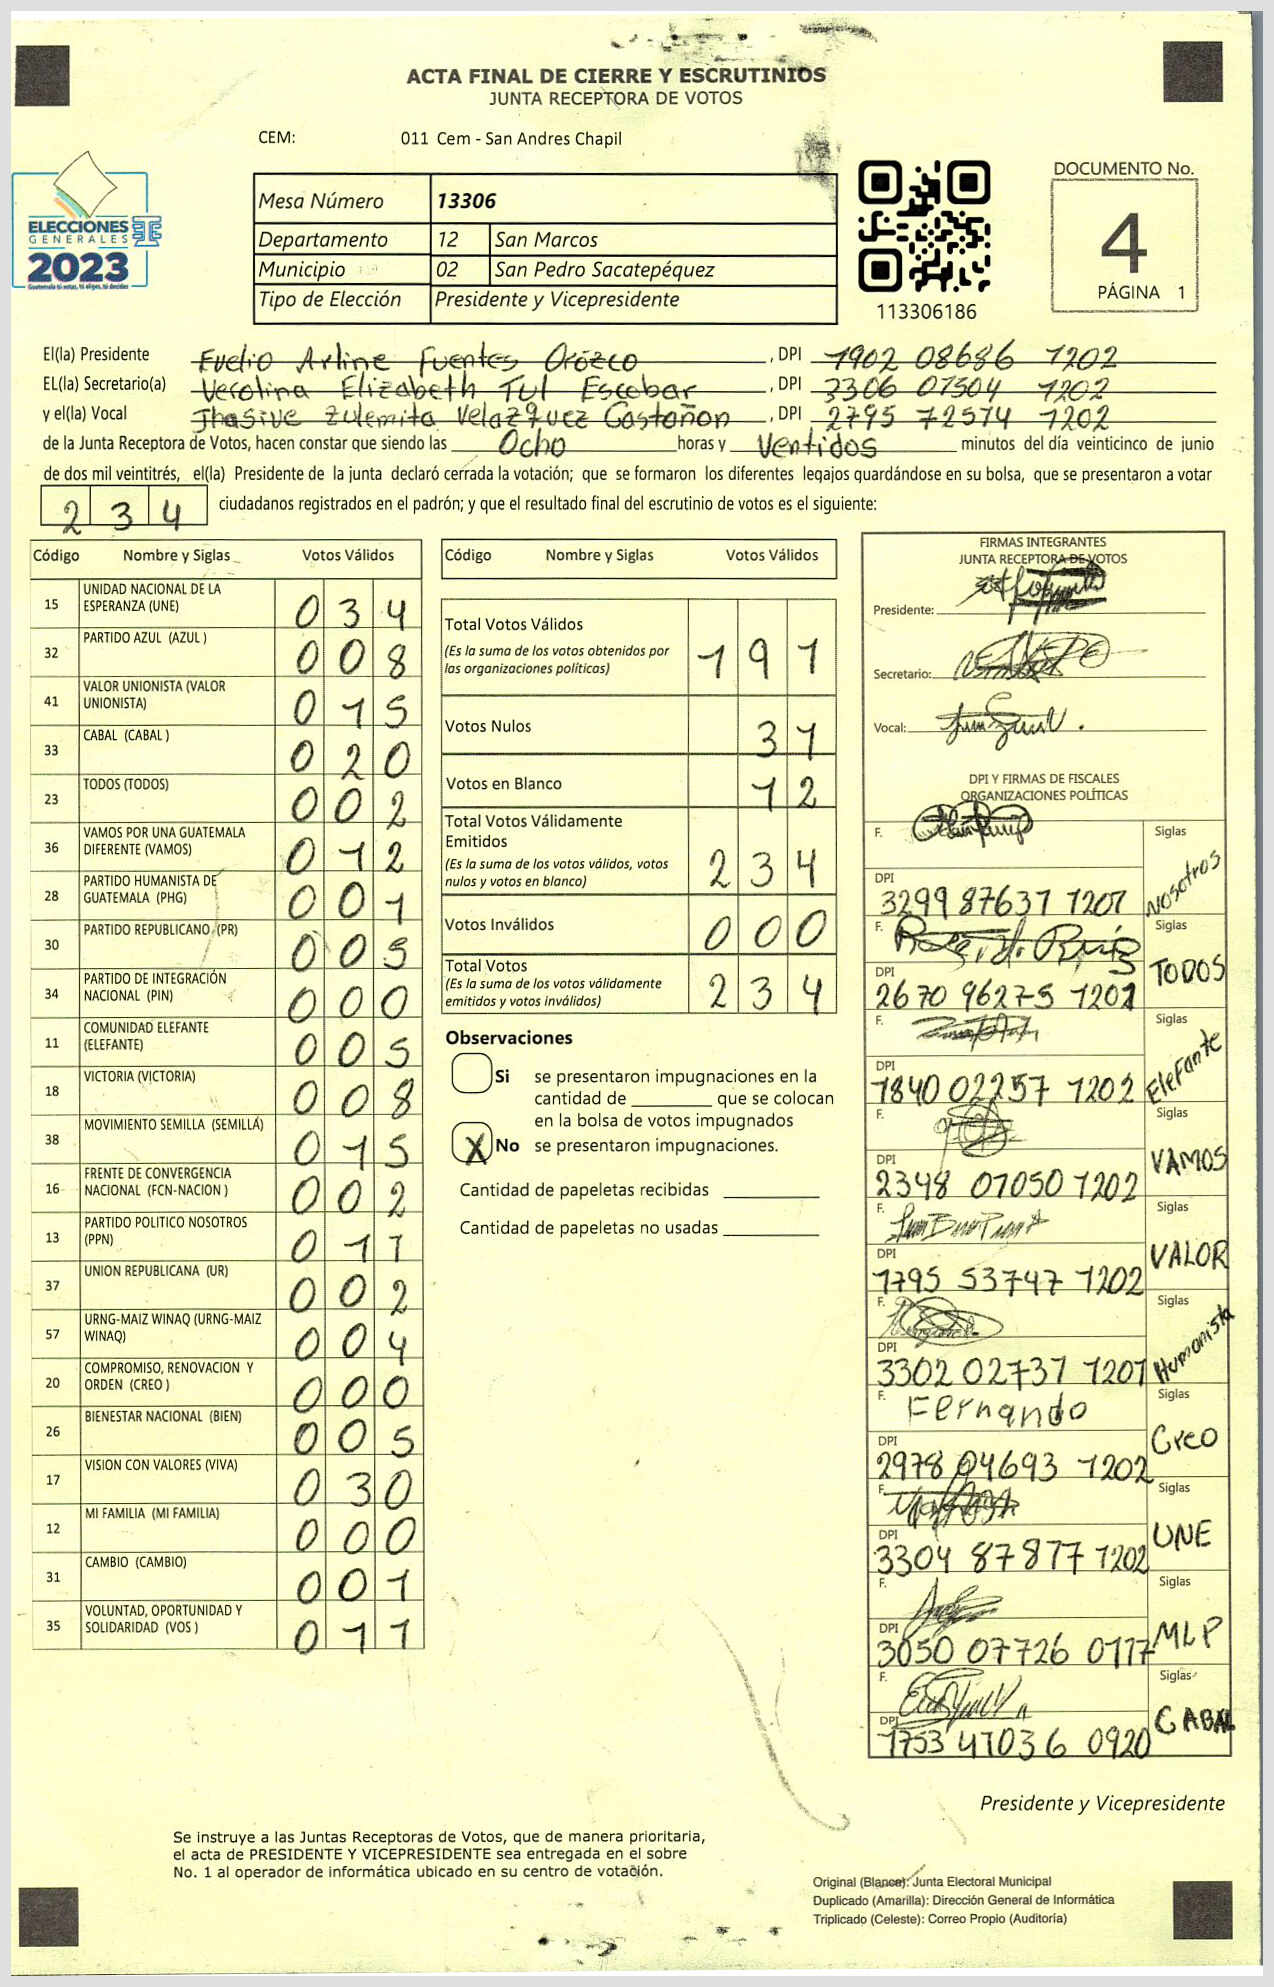 ACTA FINAL DE CIERRE Y ESCRUTINIOS
JUNTA RECEPTORA DE VOTOS
CEM: 011 Cem - San Andres Chapil
ELECCIONES
GENERALES
2023
Guatemala tú votas, tú eliges, tú decides
Mesa Número 13306
Departamento 12 San Marcos
Municipio 02 San Pedro Sacatepéquez
Tipo de Elección Presidente y Vicepresidente
113306186
DOCUMENTO No.
4
PÁGINA 1
El(la) Presidente Evelio Arline Fuentes Orózco , DPI 1902 08686 1202
EL(la) Secretario(a) Verolina Elizabeth Tul Escobar , DPI 3306 07504 1202
y el(la) Vocal Jhasive Zulemita Velazquez Castañon , DPI 2795 72574 1202
de la Junta Receptora de Votos, hacen constar que siendo las Ocho horas y Ventidos minutos del día veinticinco de junio
de dos mil veintitrés, el(la) Presidente de la junta declaró cerrada la votación; que se formaron los diferentes legajos guardándose en su bolsa, que se presentaron a votar
234 ciudadanos registrados en el padrón; y que el resultado final del escrutinio de votos es el siguiente:
Código Nombre y Siglas Votos Válidos
15 UNIDAD NACIONAL DE LA ESPERANZA (UNE) 034
32 PARTIDO AZUL (AZUL ) 008
41 VALOR UNIONISTA (VALOR UNIONISTA) 015
33 CABAL (CABAL ) 020
23 TODOS (TODOS) 002
36 VAMOS POR UNA GUATEMALA DIFERENTE (VAMOS) 012
28 PARTIDO HUMANISTA DE GUATEMALA (PHG) 001
30 PARTIDO REPUBLICANO (PR) 005
34 PARTIDO DE INTEGRACIÓN NACIONAL (PIN) 000
11 COMUNIDAD ELEFANTE (ELEFANTE) 005
18 VICTORIA (VICTORIA) 008
38 MOVIMIENTO SEMILLA (SEMILLA) 015
16 FRENTE DE CONVERGENCIA NACIONAL (FCN-NACION ) 002
13 PARTIDO POLITICO NOSOTROS (PPN) 011
37 UNION REPUBLICANA (UR) 002
57 URNG-MAIZ WINAQ (URNG-MAIZ WINAQ) 004
20 COMPROMISO, RENOVACION Y ORDEN (CREO ) 000
26 BIENESTAR NACIONAL (BIEN) 005
17 VISION CON VALORES (VIVA) 030
12 MI FAMILIA (MI FAMILIA) 000
31 CAMBIO (CAMBIO) 001
35 VOLUNTAD, OPORTUNIDAD Y SOLIDARIDAD (VOS ) 011
Código Nombre y Siglas Votos Válidos
Total Votos Válidos 191
(Es la suma de los votos obtenidos por
las organizaciones políticas)
Votos Nulos 31
Votos en Blanco 12
Total Votos Válidamente
Emitidos 234
(Es la suma de los votos válidos, votos
nulos y votos en blanco)
Votos Inválidos 000
Total Votos 234
(Es la suma de los votos válidamente
emitidos y votos inválidos)
Observaciones
Si se presentaron impugnaciones en la
cantidad de ________ que se colocan
en la bolsa de votos impugnados
X No se presentaron impugnaciones.
Cantidad de papeletas recibidas
Cantidad de papeletas no usadas
FIRMAS INTEGRANTES
JUNTA RECEPTORA DE VOTOS
Presidente:
Secretario:
Vocal:
DPI Y FIRMAS DE FISCALES
ORGANIZACIONES POLÍTICAS
F. Siglas
DPI 3299 87637 1201 Nosotros
F. Siglas
DPI 2670 96275 1201 TODOS
F. Siglas
DPI 1840 02257 1202 Elefante
F. Siglas
DPI 2348 07050 1202 VAMOS
F. Siglas
DPI 1795 53747 1202 VALOR
F. Siglas
DPI 3302 02737 1201 Humanista
F. Fernando Siglas
DPI 2978 04693 1202 Creo
F. Siglas
DPI 3304 87877 1202 UNE
F. Siglas
DPI 3050 07726 0117 MLP
F. Siglas
DPI 1753 47036 0920 CABAL
Presidente y Vicepresidente
Se instruye a las Juntas Receptoras de Votos, que de manera prioritaria,
el acta de PRESIDENTE Y VICEPRESIDENTE sea entregada en el sobre
No. 1 al operador de informática ubicado en su centro de votación.
Original (Blanco): Junta Electoral Municipal
Duplicado (Amarilla): Dirección General de Informática
Triplicado (Celeste): Correo Propio (Auditoría)